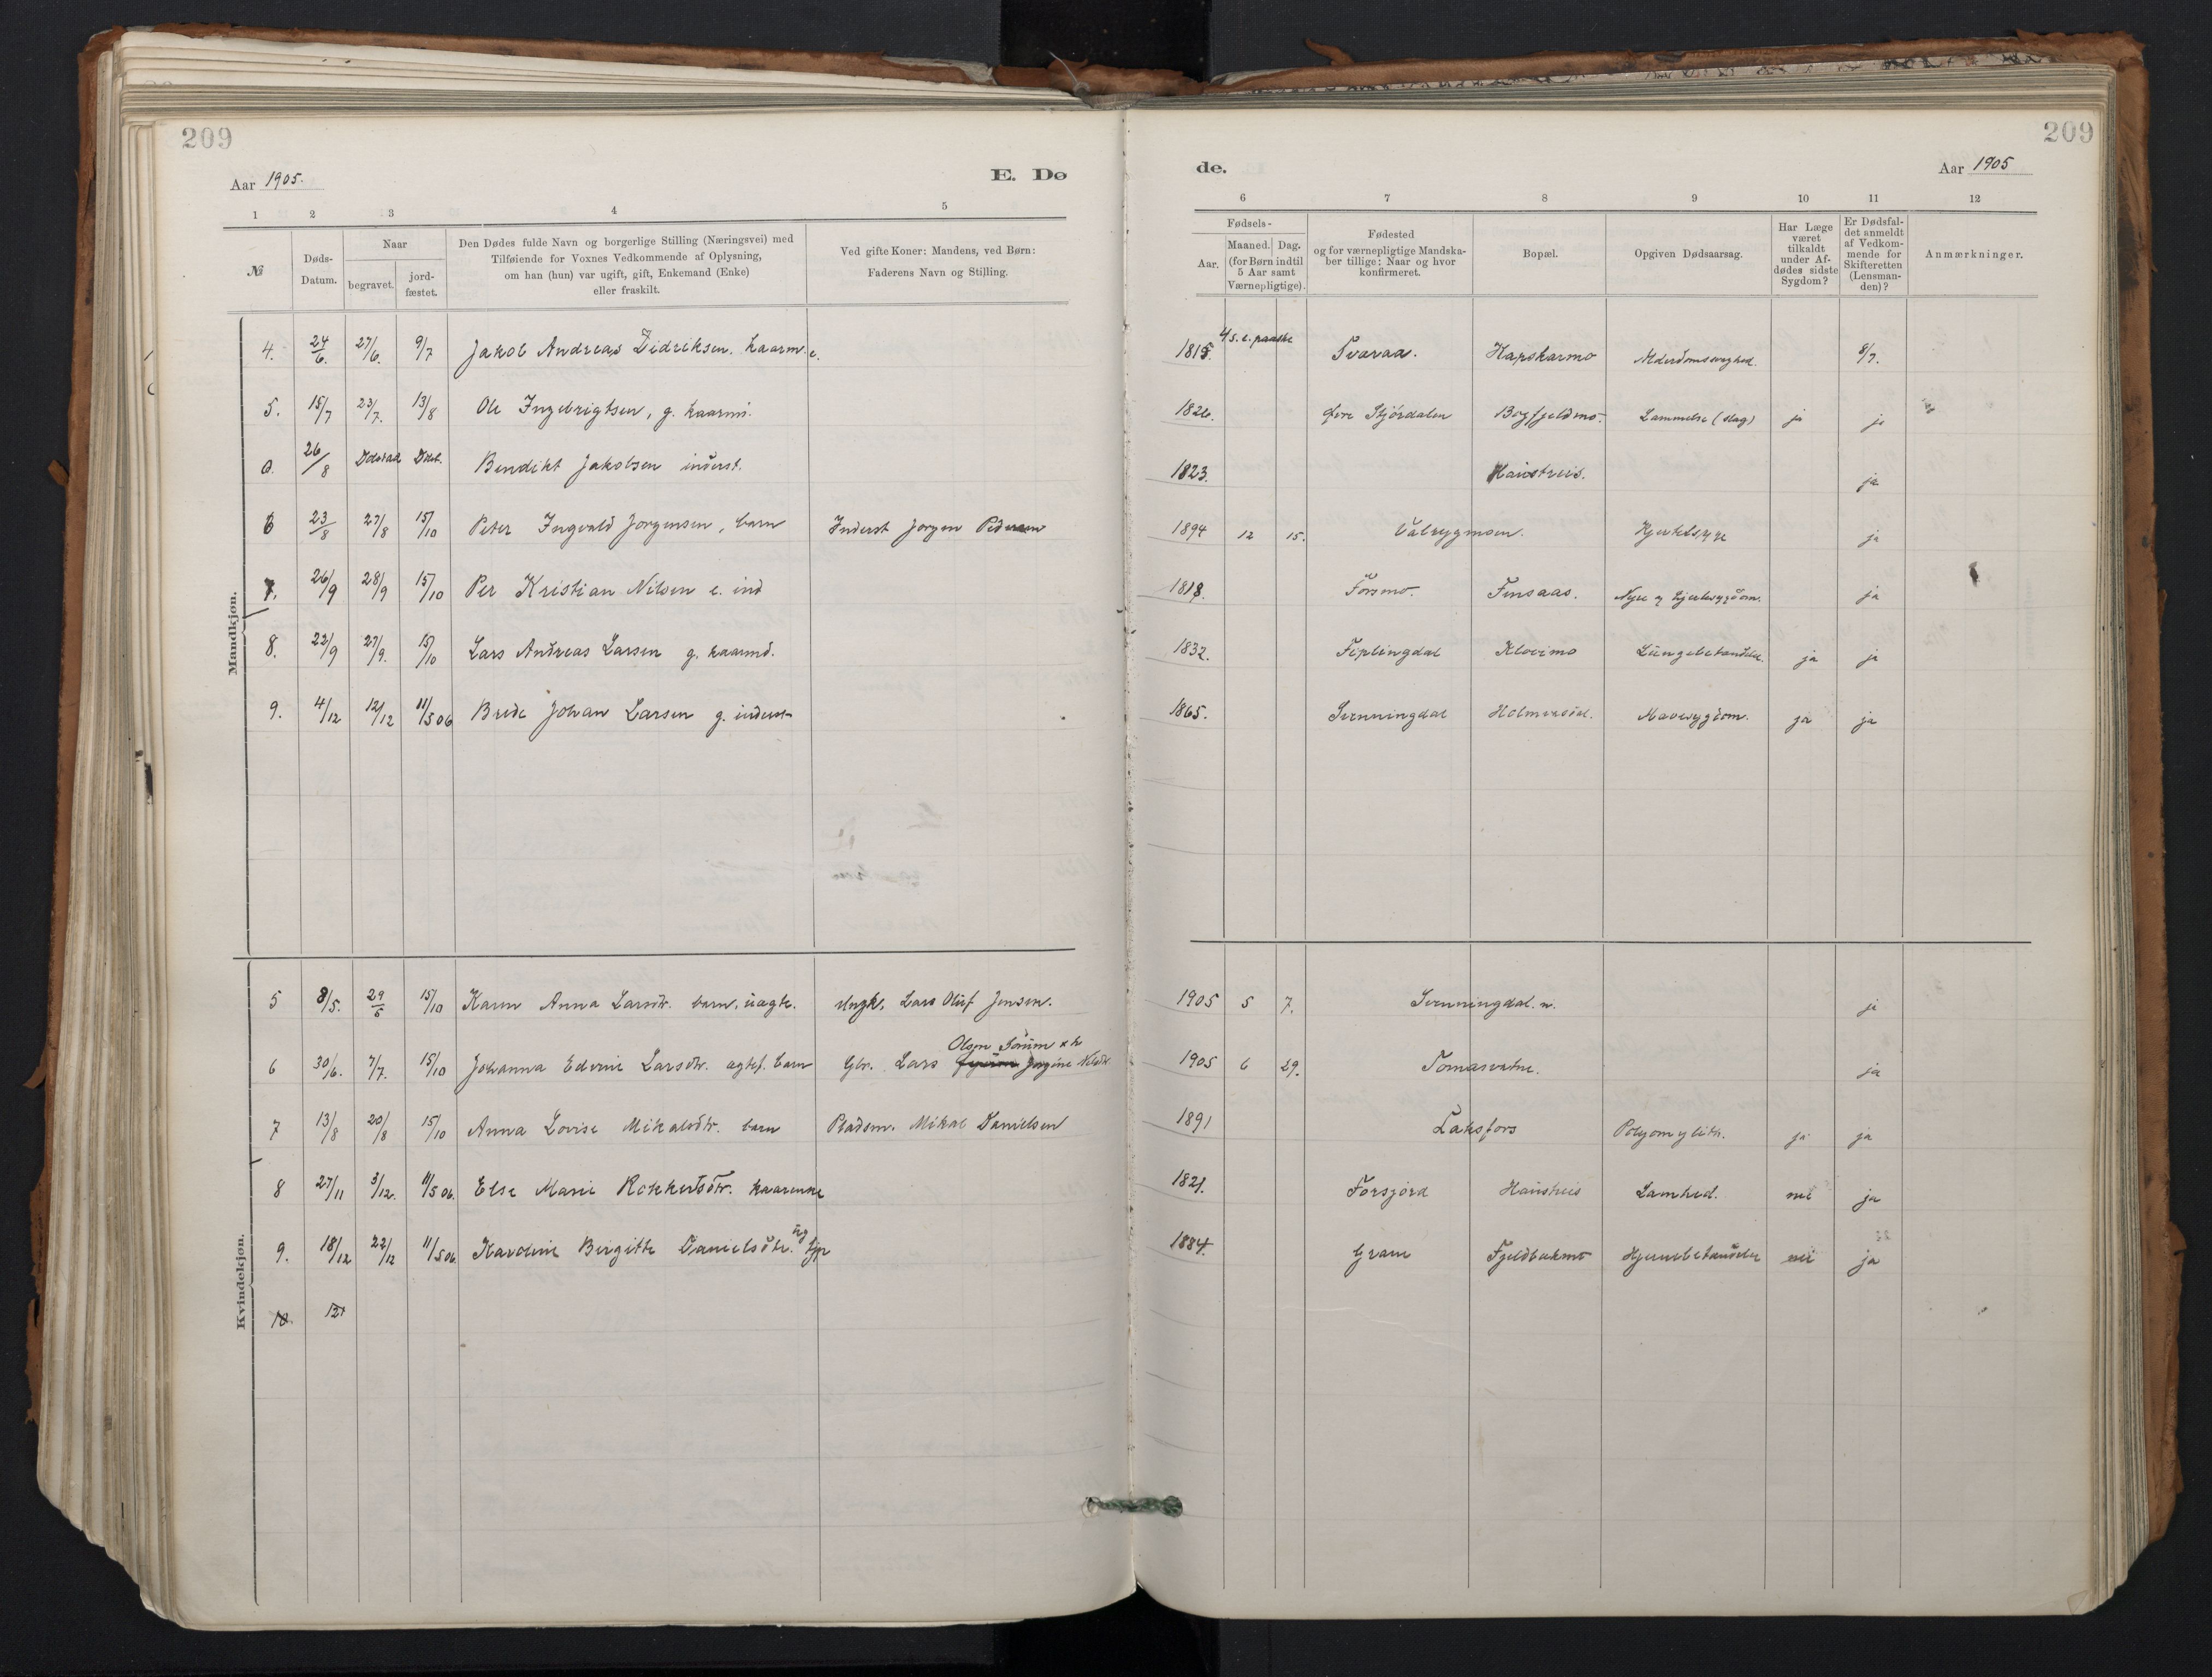 209
209
Aar 1905.
E. Dø
de.
Aar 1905
1 2 3 4 5 6 7 8 9 10 11 12
№
Døds-
Datum.
Naar
begravet.
jord-
fæstet.
Den Dødes fulde Navn og borgerlige Stilling (Næringsvei) med
Tilføiende for Voxnes Vedkommende af Oplysning,
om han (hun) var ugift, gift, Enkemand (Enke)
eller fraskilt.
Ved gifte Koner: Mandens, ved Børn:
Faderens Navn og Stilling.
Fødsels-
Aar.
Maaned. Dag.
(for Børn indtil
5 Aar samt
Værnepligtige).
Fødested
og for værnepligtige Mandska-
ber tillige: Naar og hvor
konfirmeret.
Bopæl.
Opgiven Dødsaarsag.
Har Læge
været
tilkaldt
under Af-
dødes sidste
Sygdom?
Er Dødsfal-
det anmeldt
af Vedkom-
mende for
Skifteretten
(Lensman-
den)?
Anmærkninger.
Mandkjøn.
4. 24/6. 27/6. 9/7 Jakob Andreas Didriksen. kaarm. e. 1815. 4 s. e. paaske Svaraa. Hapskarmo Alderdomssvaghed. 8/7.
5. 15/7 23/7. 13/8 Ole Ingebrigtsen, g. kaarm. 1826. Øvre Stjørdalen Bogfjeldmo. Lammelse (slag) ja ja
0. 26/8 Bendikt Jakobsen inderst. 1823. Haustreis. ja
6 23/8 27/8 15/10 Peter Ingvald Jorgensen, barn Inderst Jorgen Pedersen 1894 12 15. Valrygmoen. Hjertesyge ja
7. 26/9 28/9 15/10 Per Kristian Nilsen e. ind 1818. Forsmo. Finsaas. Nyre og hjertesygdom. ja
8. 22/9 27/9. 15/10 Lars Andreas Larsen g. kaarmd. 1832. Fiplingdal Klovimo Lungebetændelse. ja ja
9. 4/12 12/12 11/5 06 Brede Johan Larsen g. inderst 1865. Svenningdal Mavesygdom. ja ja
Kvindekjøn.
5 8/5. 29/6 15/10 Karen Anna Larsdtr. barn, uægte. Ungk. Lars Oluf Jensen. 1905 5 7. Svenningdal. n. ja
Olsen
6 30/6. 7/7. 15/10 Johanna Edvine Larsdtr. ægtef. barn Gbr. Lars Jorgine Nilsdtr. 1905 6 29. Tomasvatne. ja
7 13/8 20/8 15/10 Anna Lovise Mikalsdtr. barn Pladsm. Mikal Danielsen 1891 Laksfors Polyomylith. ja ja
8 27/11 3/12. 11/5 06. Else Marie Rokkertsdtr. kaarenke 1821. Forsjord Haustreis Lamhed. nei ja
9. 18/12 22/12 11/5 06. Karoline Birgitte Danielsdtr. ug tjp 1884. Grane Fjeldbækmo Hjernebetændelse nei ja
10. 12